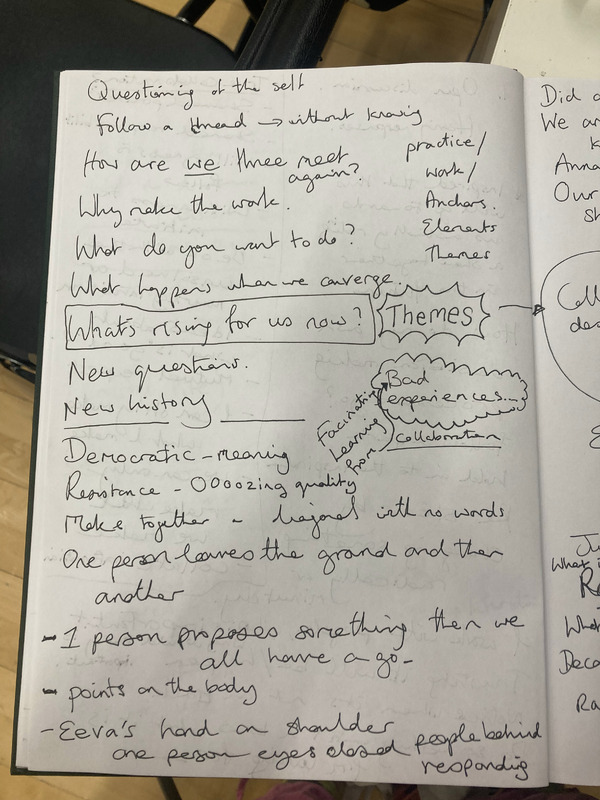 Questioning of the self
Follow a thread → without knowing
How are we three meet
again?
Why make the work.
What do you want to do?
What happens when we converge.
practice/
work/
Anchors.
Elements
Themes
What's rising for us now?
Themes
New questions.
New history
Bad
experiences...
Facinating
Learning
from
Collaboration
Democratic - meaning
Resistance - OOoozing quality
Make together - with no words
One person leaves the ground and then
another
- 1 person proposes something then we
all have a go -
- points on the body
- Eeva's hand on shoulder
one person eyes closed people behind
responding
Did
We ar
Anna
Our
sh
Coll
dec
What i
Wha
Deca
Ra